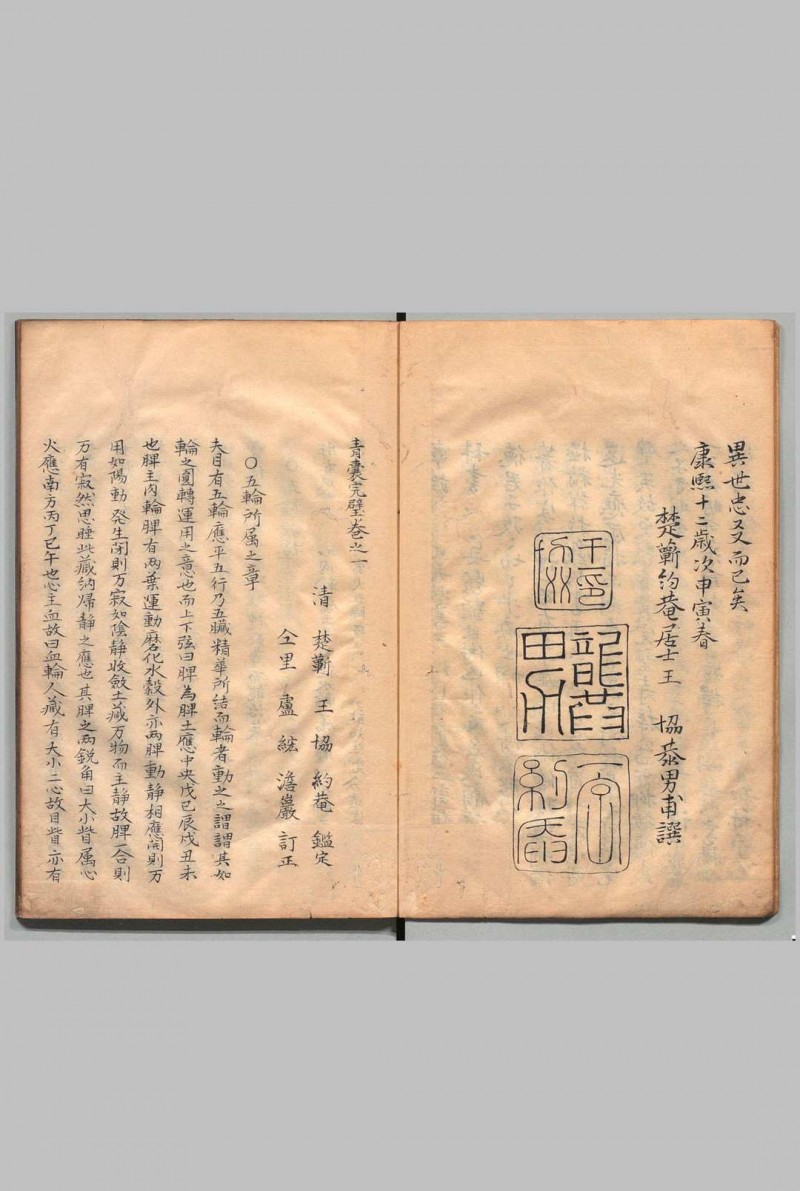 異世忠又而已矣
康熙十二歳次甲寅春
楚蘄約菴居士王　協恭男甫譔
青囊完璧卷之一
清　楚蘄　王　協　約菴　鑑定
仝里　盧　紘　澹巖　訂正
○五輪所属之章
夫目有五輪應乎五行乃五臟精華所結而輪者動之之謂謂其如
輪之圓轉運用之意也而上下弦曰脾為脾土應中央戊己辰戌丑未
也脾主肉輪脾有兩葉運動磨化水穀外亦两脾動静相應開則万
用如陽動發生闭則万寂如陰静收斂土藏万物而主静故脾一合則
万有寂然思睡此藏纳歸静之應也其脾之两鋭角曰大小眥属心
火應南方丙丁巳午也心主血故曰血輪人藏有大小二心故目眥亦有